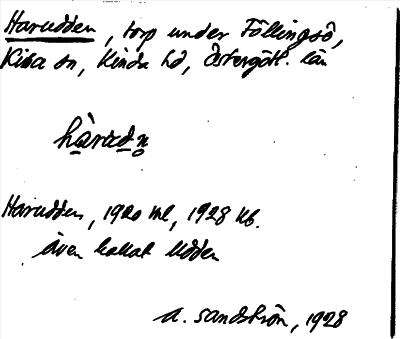 Harudden, torp under Föllingsö,
Kisa sn, Kinda hd, Östergötl. län
hàrudn̥
Harudden, 1920 ml, 1928 kb.
även kallat Udden
A. Sandström, 1928